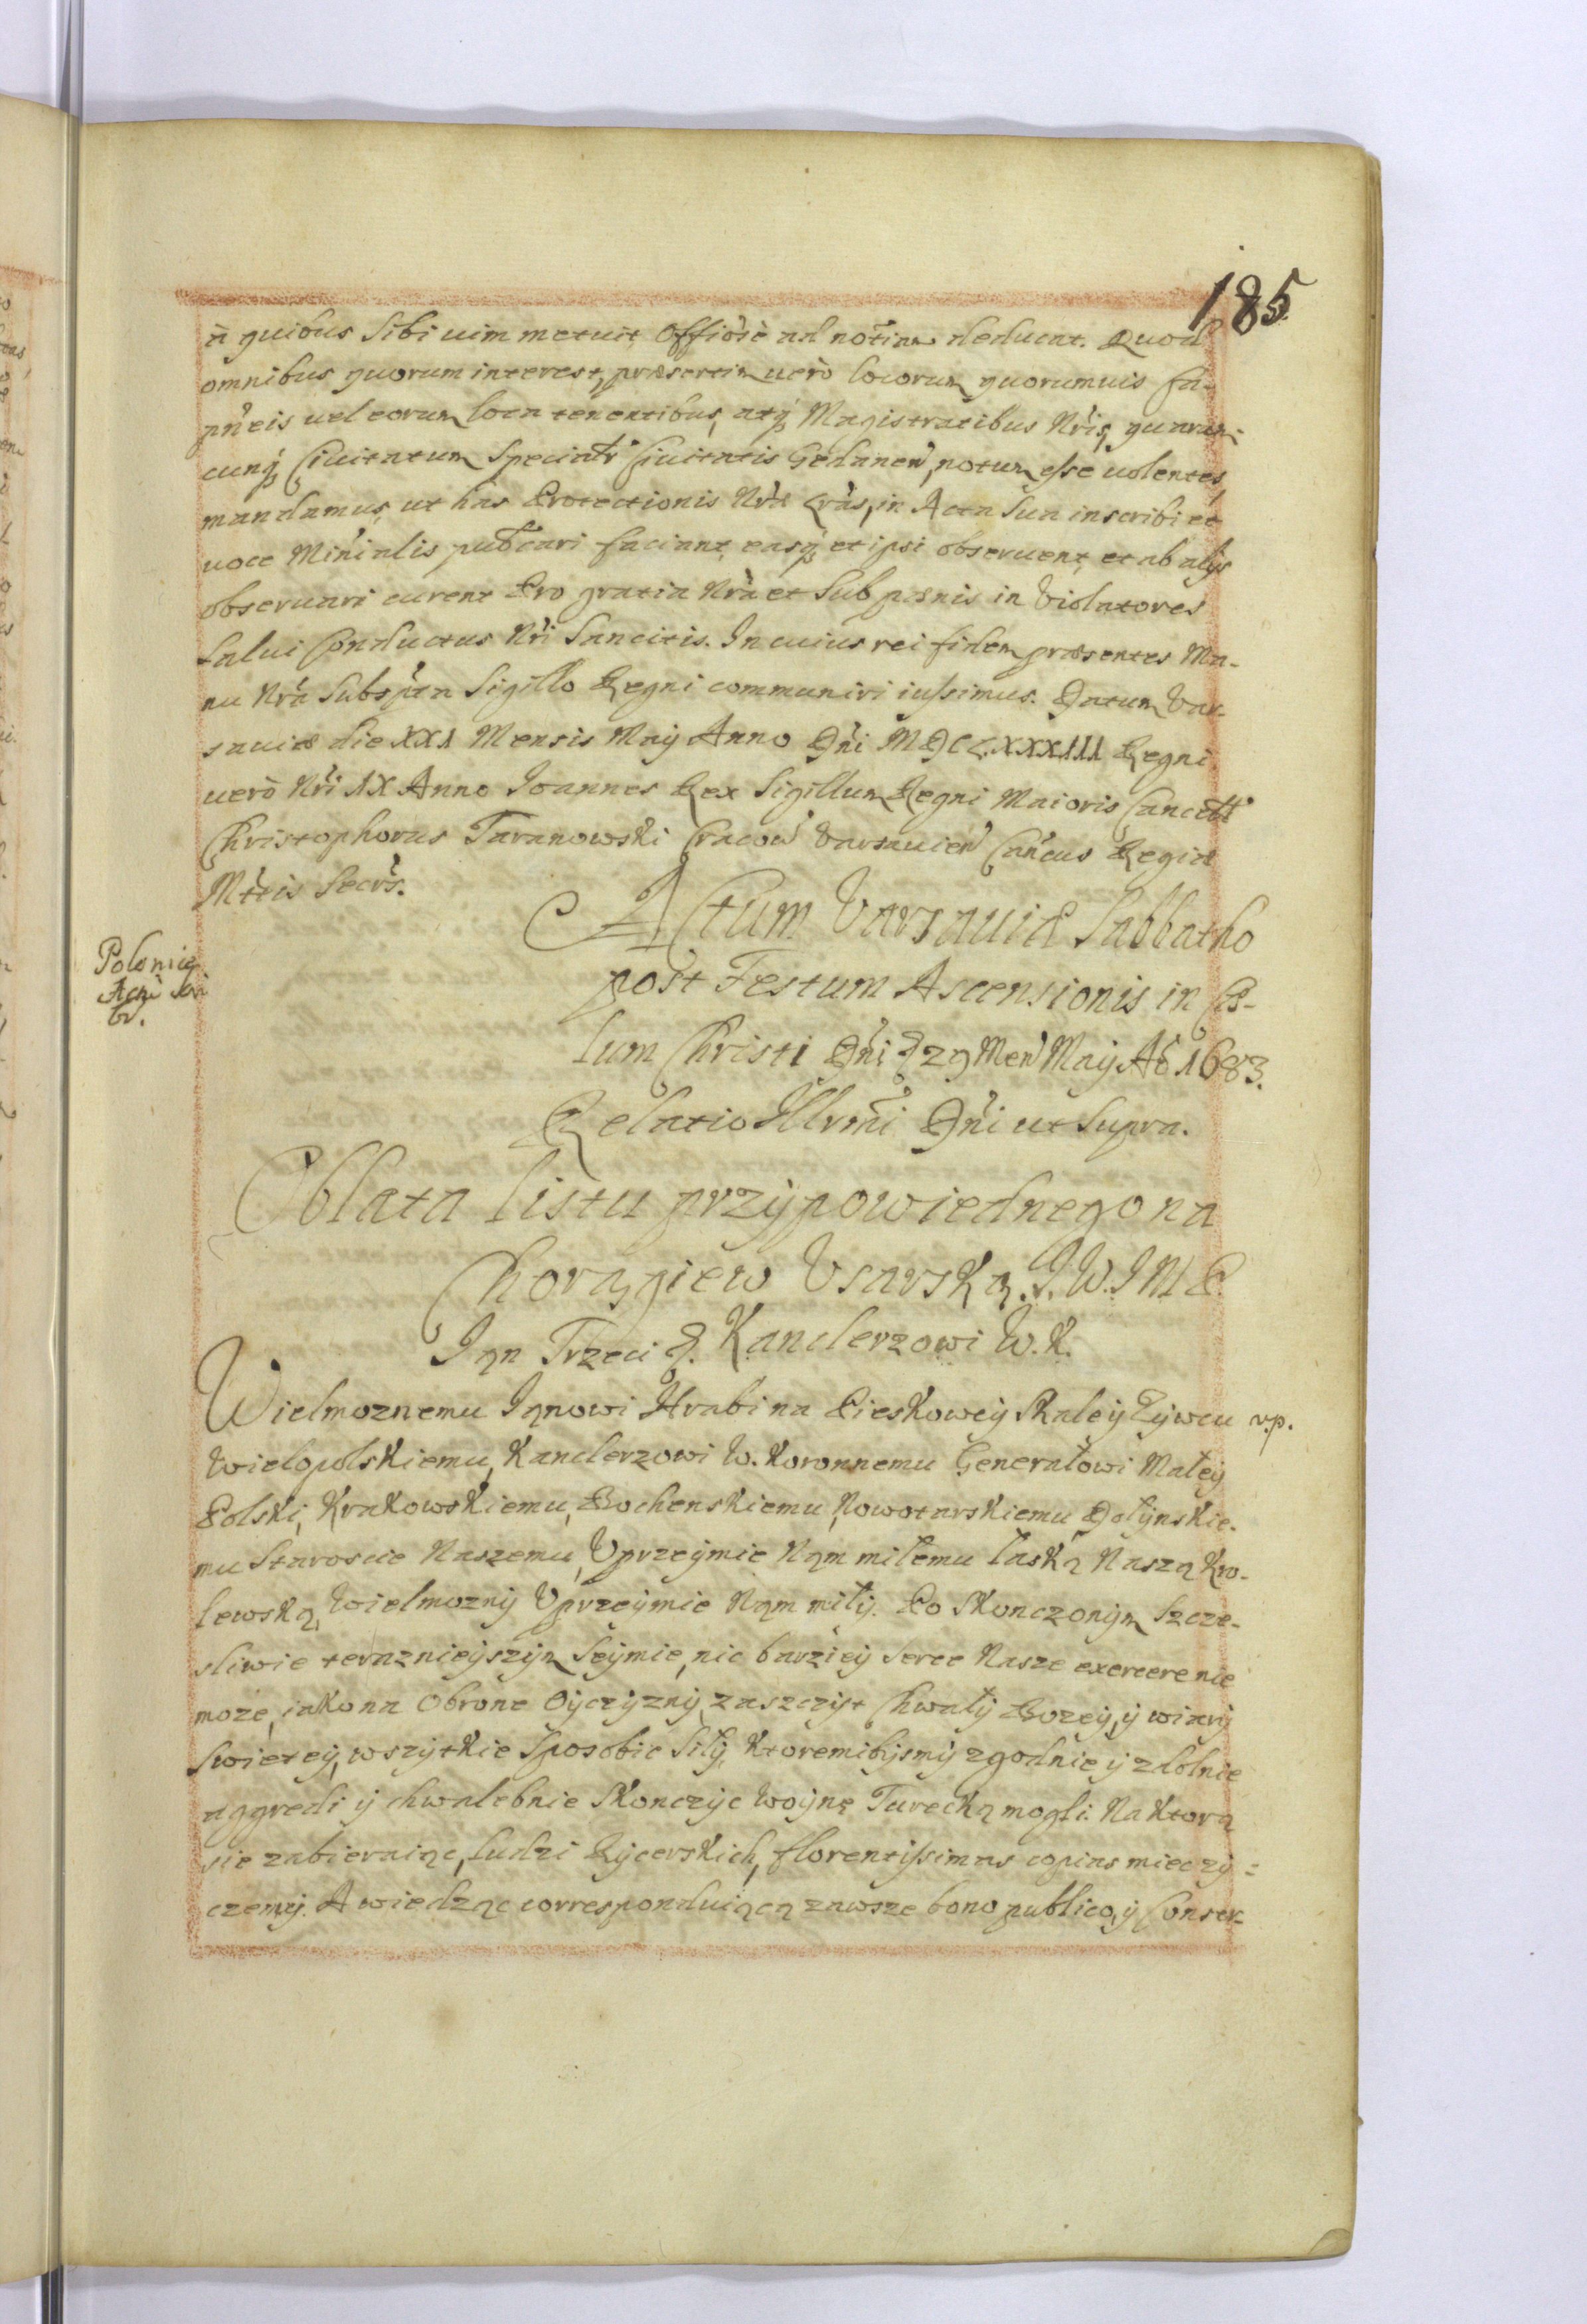 185
à quibus Sibi uim metuit Offiosè ad notiam deducat. Quod
omnibus quorum interest, præsertim uerò locorum quorumuis Ca-
pneis uel eorum loca tenentibus, atq; Magistratibus Nris, quarum-
cunq; Ciuitatum Specialr Ciuitatis Gedanen, notum esse uolentes,
mandamus, ut has Protectionis Nræ Lras, in Acta Sua inscribi et
uoce Minialis pubcari faciant, easq; et ipsi obseruent, et ab alÿs
obseruari curent Pro gratia Nra et Sub pænis in Violatores
Salui Conductus Nri Sancitis. In cuius rei fidem præsentes Ma-
nu Nra Subs̃pta Sigillo Regni communiri iussimus. Datum Var-
sauiæ die XXI Mensis Maÿ Anno Dni MDCLXXXIII Regni
uerò Nri IX Anno Ioannes Rex Sigillum Regni Maioris Cancell
Christophorus Taranowski Cracou Varsauien Cancus Regiæ
Mttis Secrs.
Actum Varsauiæ Sabbatho
post Festum Ascensionis in Cæ-
Polonice
lum Christi Dni d 29 Men Maÿ Ao 1683.
Relatio Illrmi Dni ut Supra.
Oblata listu przÿpowiednego na
Chorągiew Vsarską. I. W. IMP.
Ian Trzeci D. Kanclerzowi W. K.
Wielmoznemu Ianowi Hrabi na Pieskoweÿ Skale ÿ Zÿwcu v.p.
Wielopolskiemu, Kanclerzowi W. Koronnemu Generałowi Małeÿ
Polski, Krakowskiemu, Bochenskiemu, Nowotarskiemu, Dolÿnskie-
mu Staroscie Naszemu, Vprzeÿmie Nąm miłemu łaską Naszą Kro-
lewską, Wielmoznÿ Vprzeÿmie Nąm miłÿ. Po Skonczonÿm Szcze-
sliwie teraznieÿszÿm Seÿmie, nic barzieÿ Serce Nasze exercere nie
moze, iako na Obrone Oÿczÿznÿ, zaszczÿt Chwałÿ Bozeÿ, ÿ wiarÿ
Swieteÿ, wszÿtkie Sposobic Siłÿ, Ktoremibÿsmÿ zgodnie ÿ zdolnie
aggredi ÿ chwalebnie Skonczÿc Woÿnę Turecką mogli. Na Ktorą
sie zabieraiąc, Ludzi Rÿcerskich, florentissimas copias miec zÿ-
czemÿ. A wiedząc correspanduiącą zawsze bono publico, ÿ Conser-